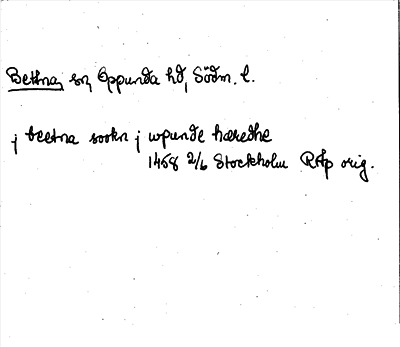 Bettna, sn, Oppunda hd, Södm. l.
j beetna sookn j wpunde hæredhe
1458 2/6 Stockholm RAp orig.